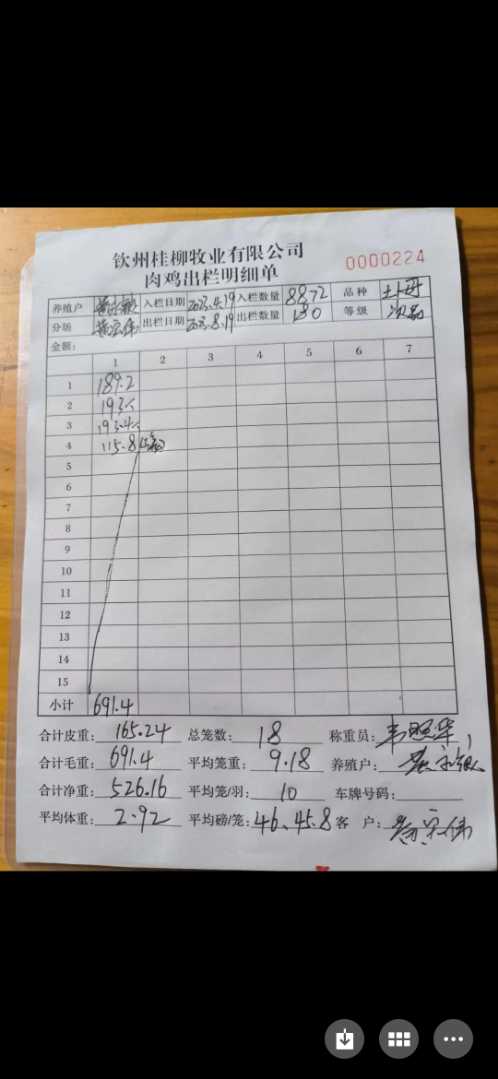 钦州桂柳牧业有限公司
肉鸡出栏明细单
0000224
养殖户 入栏日期 2023.4.19 入栏数量 8872 品种 土
分场 出栏日期 2023.8.19 出栏数量 180 等级 次品
金额:
1 2 3 4 5 6 7
1 189.2
2 193
3 193.4
4 115.8
5
6
7
8
9
10
11
12
13
14
15
小计 691.4
合计皮重: 165.24 总笼数: 18 称重员:
合计毛重: 691.4 平均笼重: 9.18 养殖户:
合计净重: 526.16 平均笼/羽: 10 车牌号码:
平均体重: 2.92 平均磅/笼: 46、45.8 客 户: